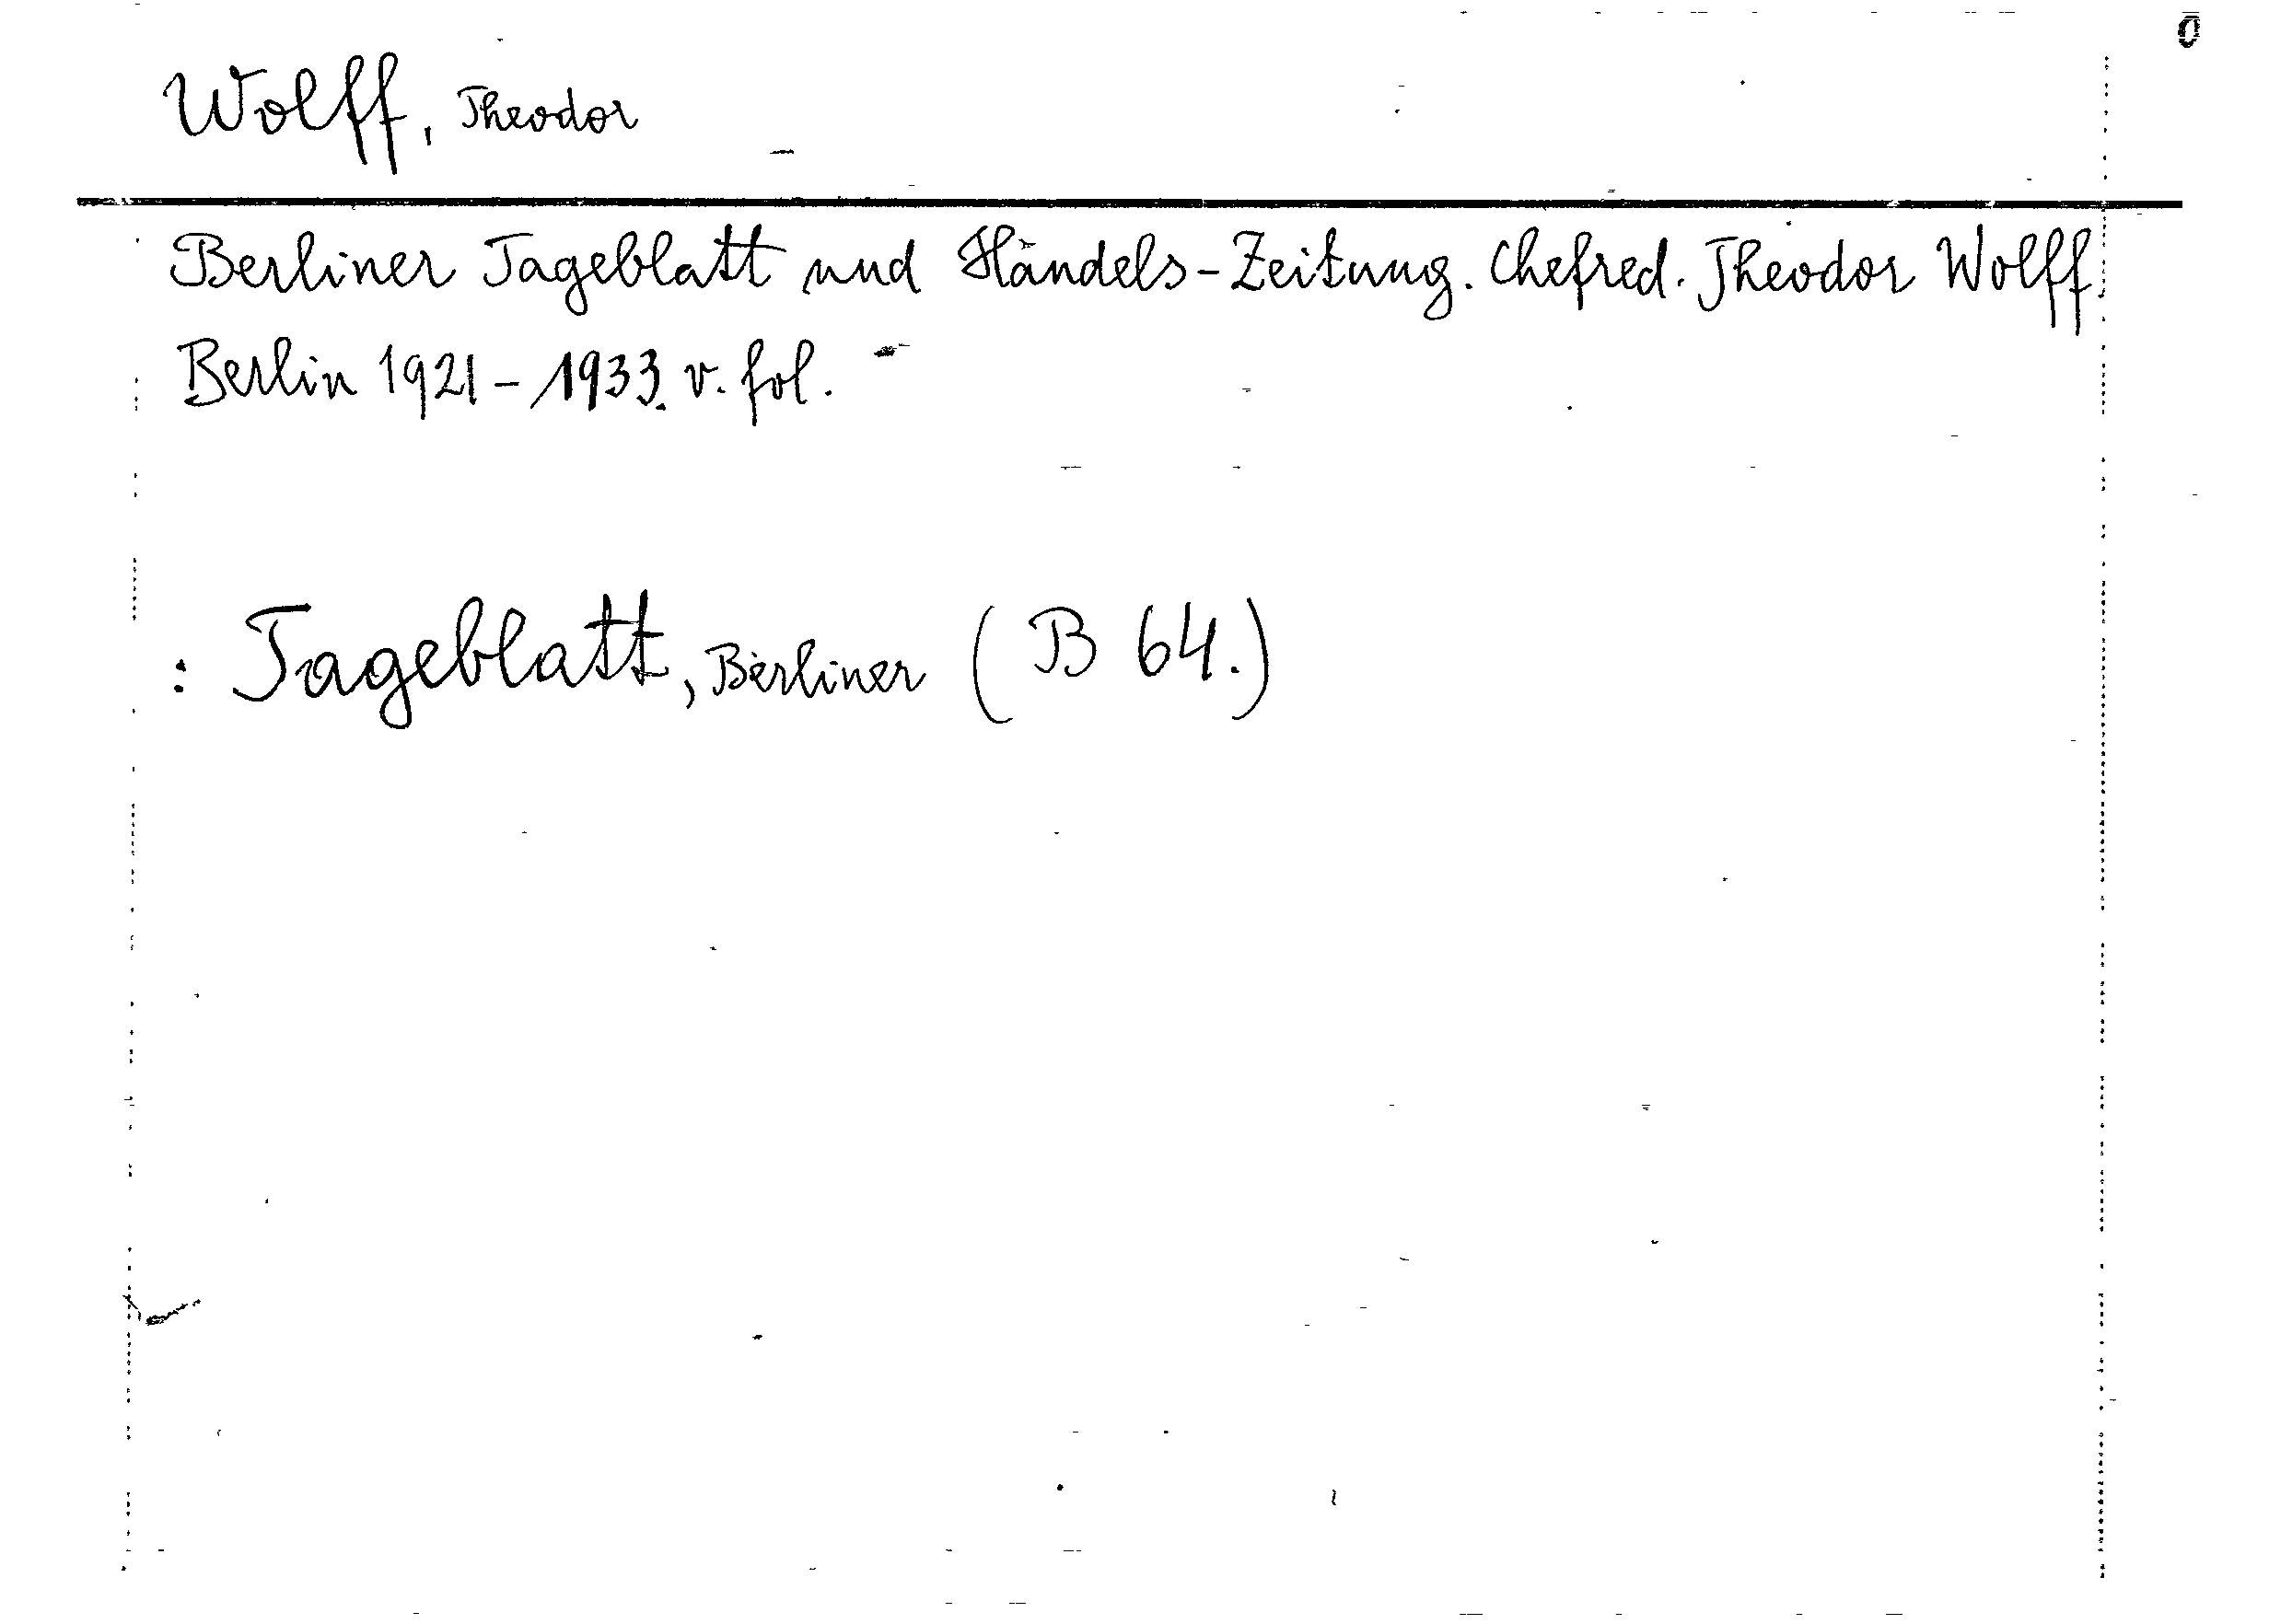 0
Wolff, Theodor
Berliner Tageblatt und Handels-Zeitung. Chefred. Theodor Wolff.
Berlin 1921-1933. v. fol.
: Tageblatt, Berliner (B 64.)